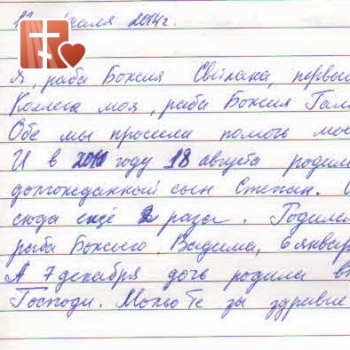 2014г.
Я, раба Божия Светлана, первый
Коллега моя, раба Божия Гали
Обе мы просили помочь мое
И в 2011 году 18 августа родил
долгожданный сын Степан. 
сюда ещё 2 раза. Родился
раба Божиего, Вадима, 6 январ
А 7 декабря дочь родила в
Господи. Молю Те за здравие